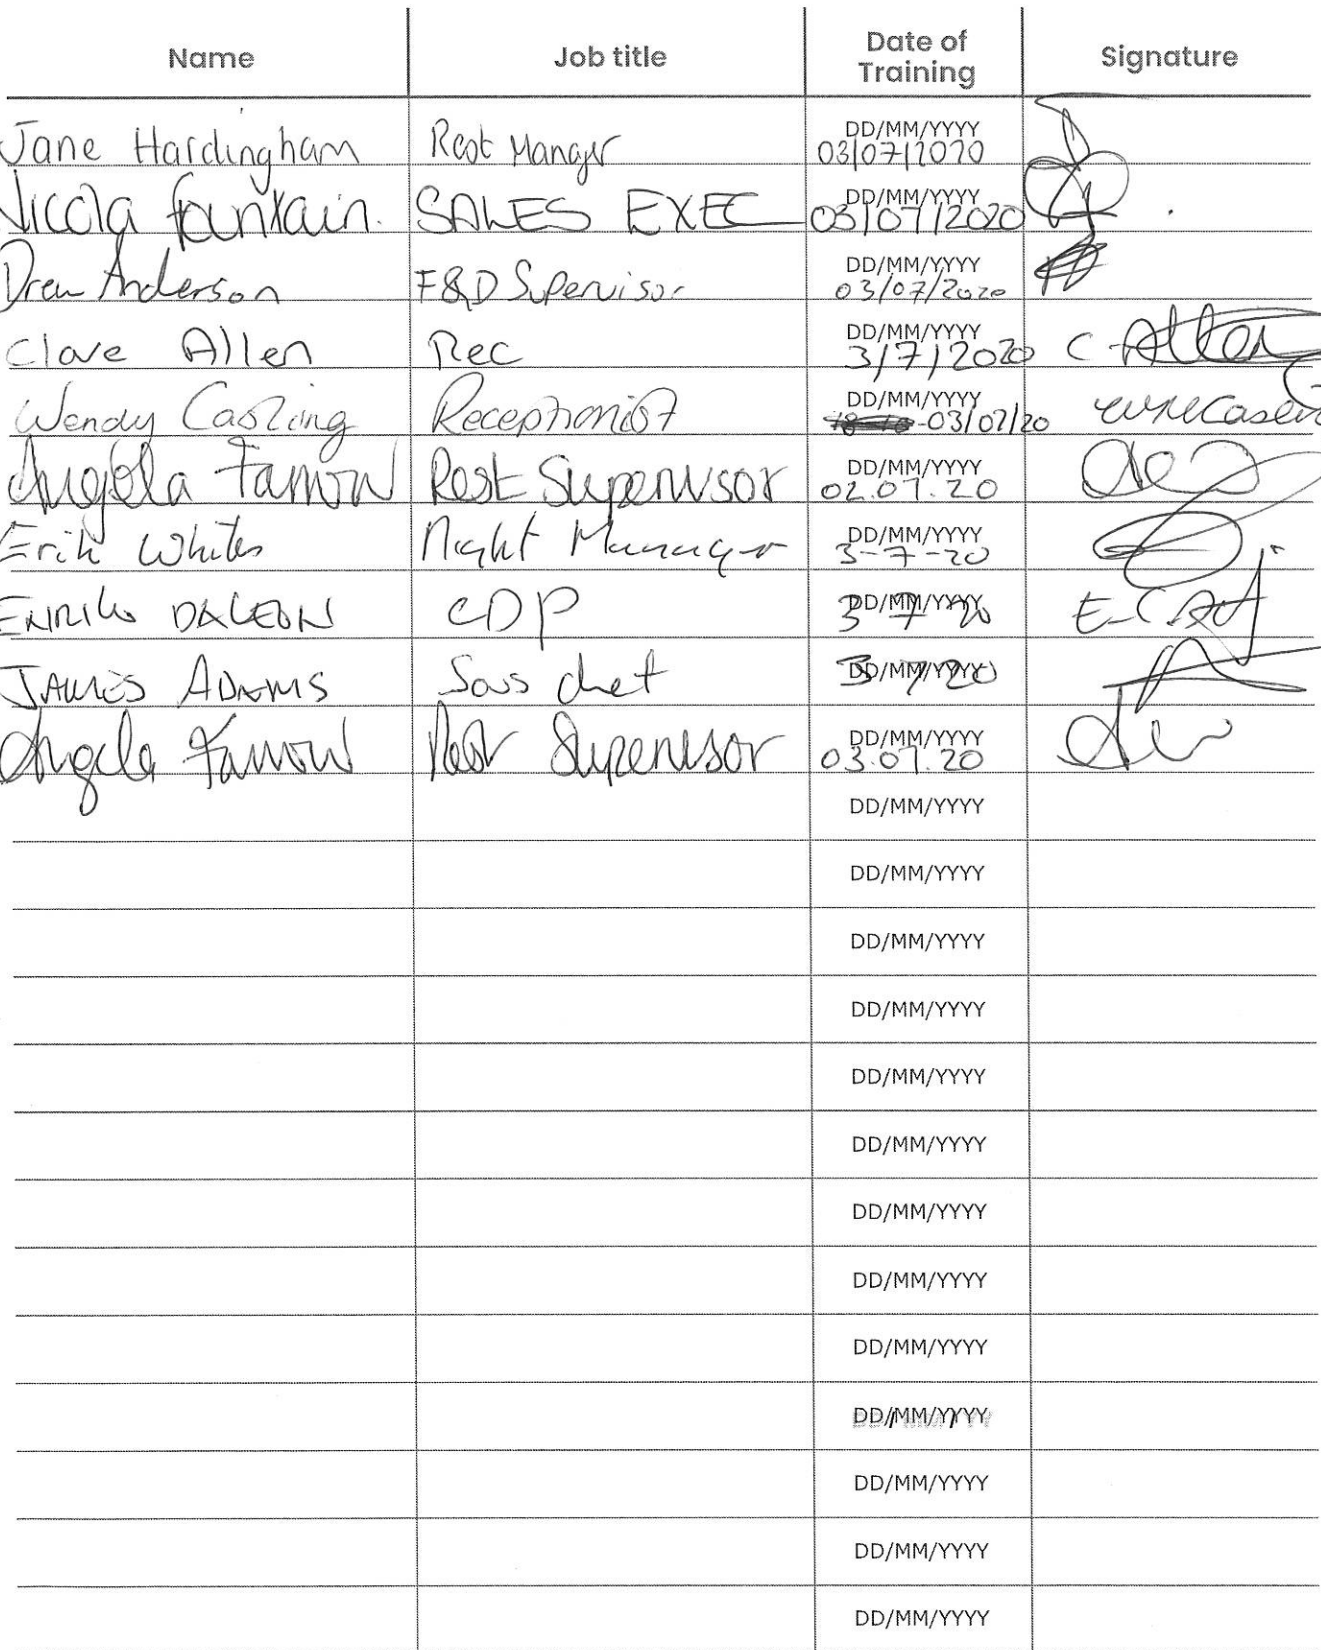 Name Job title Date of Training Signature
Jane Hardingham Rest Manager DD/MM/YYYY 03/07/2020
Nicola fountain. SALES EXEC DD/MM/YYYY 03/07/2020
Drew Anderson F&D Supervisor DD/MM/YYYY 03/07/2020
Clare Allen Rec DD/MM/YYYY 3/7/2020 C Allen
Wendy Casling Receptionist DD/MM/YYYY 03/07/20
Angela Farrow Rest Supervisor DD/MM/YYYY 02.07.20
Erik Whites Night Manager DD/MM/YYYY 3-7-20
CDP DD/MM/YYYY 3 7 20
JAMES ADAMS Sous chef DD/MM/YYYY 3 7/20
Angela Farrow Rest Supervisor DD/MM/YYYY 03.07.20
DD/MM/YYYY
DD/MM/YYYY
DD/MM/YYYY
DD/MM/YYYY
DD/MM/YYYY
DD/MM/YYYY
DD/MM/YYYY
DD/MM/YYYY
DD/MM/YYYY
DD/MM/YYYY
DD/MM/YYYY
DD/MM/YYYY
DD/MM/YYYY